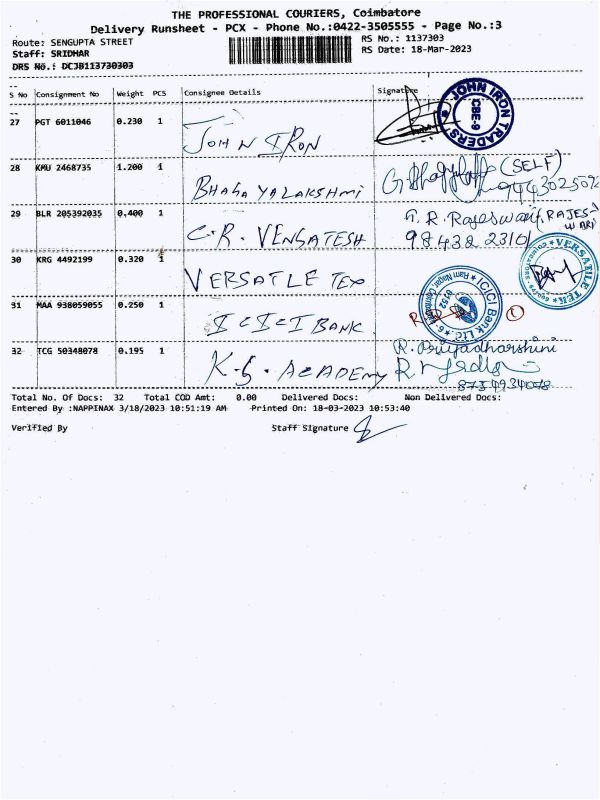 THE PROFESSIONAL COURIERS, Coimbatore
Delivery Runsheet - PCX - Phone No.:0422-3505555 - Page No.:3
Route: SENGUPTA STREET RS No.: 1137303
Staff: SRIDHAR RS Date: 18-Mar-2023
DRS No.: DCJB113730303
S No Consignment No Weight PCS Consignee Details Signature
27 PGT 6011046 0.230 1 JOHN IRON
JOHN IRON TRADERS CBE-9
28 KMU 2468735 1.200 1 BHAGAYALAKSHMI (SELF)
29 BLR 205392035 0.400 1 C.R. VENSATESH
R. Rajeswari (RAJESWARI)
30 KRG 4492199 0.320 1 VERSATLE TEX
VERSATILE TEK
31 MAA 938059055 0.250 1 ICICI BANK
ICICI Bank LTD.
32 TCG 50348078 0.195 1 K.G. ACADEMY R. Priyadharshini
8754934078
Total No. Of Docs: 32 Total COD Amt: 0.00 Delivered Docs: Non Delivered Docs:
Entered By :NAPPINAX 3/18/2023 10:51:19 AM Printed On: 18-03-2023 10:53:40
Verified By Staff Signature